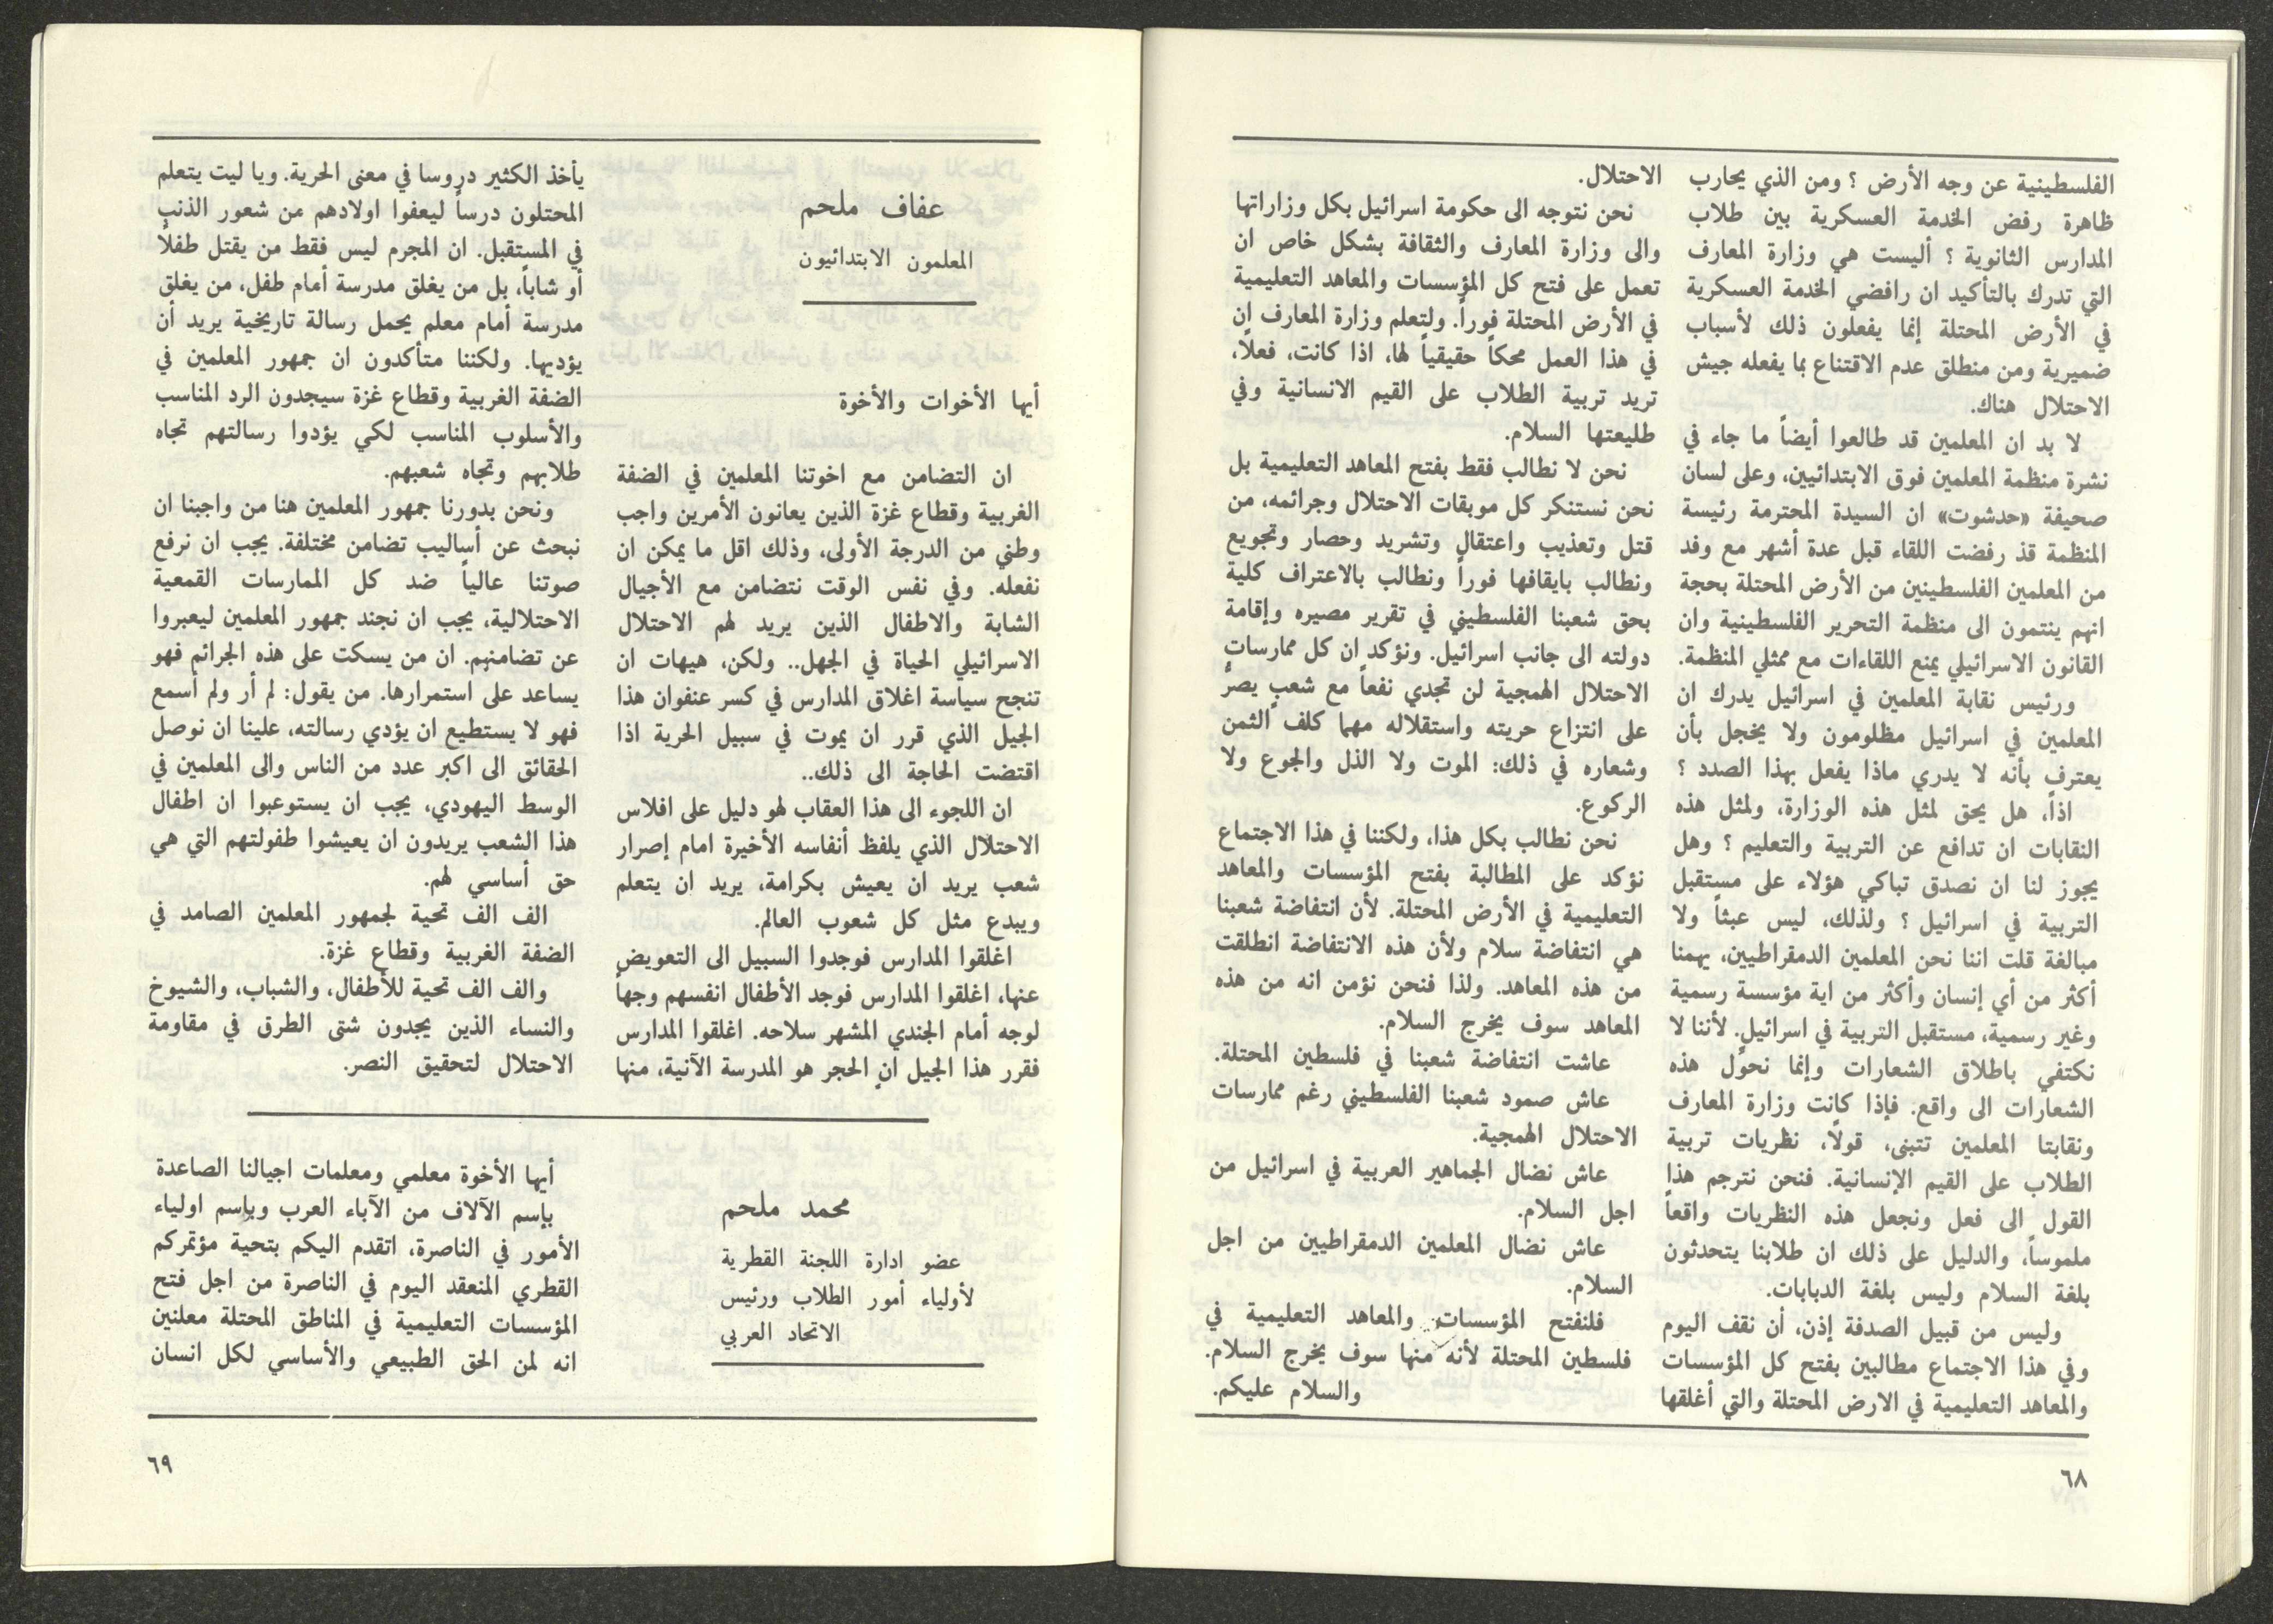 الفلسطينية عن وجه الأرض ؟ ومن الذي يحارب
ظاهرة رفض الخدمة العسكرية بين طلاب
المدارس الثانوية ؟ أليست هي وزارة المعارف
التي تدرك بالتأكيد ان رافضي الخدمة العسكرية
في الأرض المحتلة إنما يفعلون ذلك لأسباب
ضميرية ومن منطلق عدم الاقتناع بما يفعله جيش
الاحتلال هناك.
لا بد ان المعلمين قد طالعوا أيضاً ما جاء في
نشرة منظمة المعلمين فوق الابتدائيين، وعلى لسان
صحيفة «حدشوت» ان السيدة المحترمة رئيسة
المنظمة قد رفضت اللقاء قبل عدة أشهر مع وفد
من المعلمين الفلسطينين من الأرض المحتلة بحجة
انهم ينتمون الى منظمة التحرير الفلسطينية وان
القانون الاسرائيلي يمنع اللقاءات مع ممثلي المنظمة.
ورئيس نقابة المعلمين في اسرائيل يدرك ان
المعلمين في اسرائيل مظلومون ولا يخجل بأن
يعترف بأنه لا يدري ماذا يفعل بهذا الصدد ؟
اذاً، هل يحق لمثل هذه الوزارة، ولمثل هذه
النقابات ان تدافع عن التربية والتعليم ؟ وهل
يجوز لنا ان نصدق تباكي هؤلاء على مستقبل
التربية في اسرائيل ؟ ولذلك، ليس عبثاً ولا
مبالغة قلت اننا نحن المعلمين الدمقراطيين، يهمنا
أكثر من أي إنسان وأكثر من اية مؤسسة رسمية
وغير رسمية، مستقبل التربية في اسرائيل. لأننا لا
نكتفي باطلاق الشعارات وإنما نحوّل هذه
الشعارات الى واقع. فإذا كانت وزارة المعارف
ونقابتا المعلمين تتبنى، قولاً، نظريات تربية
الطلاب على القيم الإنسانية. فنحن نترجم هذا
القول الى فعل ونجعل هذه النظريات واقعاً
ملموساً، والدليل على ذلك ان طلابنا يتحدثون
بلغة السلام وليس بلغة الدبابات.
وليس من قبيل الصدفة إذن، أن نقف اليوم
وفي هذا الاجتماع مطالبين بفتح كل المؤسسات
والمعاهد التعليمية في الارض المحتلة والتي أغلقها
الاحتلال.
نحن نتوجه الى حكومة اسرائيل بكل وزاراتها
والى وزارة المعارف والثقافة بشكل خاص ان
تعمل على فتح كل المؤسسات والمعاهد التعليمية
في الأرض المحتلة فوراً. ولتعلم وزارة المعارف ان
في هذا العمل محكاً حقيقياً لها، اذا كانت، فعلاً،
تريد تربية الطلاب على القيم الانسانية وفي
طليعتها السلام.
نحن لا نطالب فقط بفتح المعاهد التعليمية بل
نحن نستنكر كل موبقات الاحتلال وجرائمه، من
قتل وتعذيب واعتقال وتشريد وحصار وتجويع
ونطالب بايقافها فوراً ونطالب بالاعتراف كلية
بحق شعبنا الفلسطيني في تقرير مصيره وإقامة
دولته الى جانب اسرائيل. ونؤكد ان كل ممارسات
الاحتلال الهمجية لن تجدي نفعاً مع شعب يصرّ
على انتزاع حريته واستقلاله مهما كلف الثمن
وشعاره في ذلك: الموت ولا الذل والجوع ولا
الركوع.
نحن نطالب بكل هذا، ولكننا في هذا الاجتماع
نؤكد على المطالبة بفتح المؤسسات والمعاهد
التعليمية في الأرض المحتلة. لأن انتفاضة شعبنا
هي انتفاضة سلام ولأن هذه الانتفاضة انطلقت
من هذه المعاهد. ولذا فنحن نؤمن انه من هذه
المعاهد سوف يخرج السلام.
عاشت انتفاضة شعبنا في فلسطين المحتلة.
عاش صمود شعبنا الفلسطيني رغم ممارسات
الاحتلال الهمجية.
عاش نضال الجماهير العربية في اسرائيل من
اجل السلام.
عاش نضال المعلمين الدمقراطيين من اجل
السلام.
فلنفتح المؤسسات والمعاهد التعليمية في
فلسطين المحتلة لأنه منها سوف يخرج السلام.
والسلام عليكم.
٦٨
عفاف ملحم
المعلمون الابتدائيون
أيها الأخوات والأخوة
ان التضامن مع اخوتنا المعلمين في الضفة
الغربية وقطاع غزة الذين يعانون الأمرين واجب
وطني من الدرجة الأولى، وذلك اقل ما يمكن ان
نفعله. وفي نفس الوقت نتضامن مع الأجيال
الشابة والاطفال الذين يريد لهم الاحتلال
الاسرائيلي الحياة في الجهل.. ولكن، هيهات ان
تنجح سياسة اغلاق المدارس في كسر عنفوان هذا
الجيل الذي قرر ان يموت في سبيل الحرية اذا
اقتضت الحاجة الى ذلك..
ان اللجوء الى هذا العقاب لهو دليل على افلاس
الاحتلال الذي يلفظ أنفاسه الأخيرة امام إصرار
شعب يريد ان يعيش بكرامة، يريد ان يتعلم
ويبدع مثل كل شعوب العالم.
اغلقوا المدارس فوجدوا السبيل الى التعويض
عنها، اغلقوا المدارس فوجد الأطفال انفسهم وجهاً
لوجه أمام الجندي المشهر سلاحه. اغلقوا المدارس
فقرر هذا الجيل ان الحجر هو المدرسة الآنية، منها
يأخذ الكثير دروسا في معنى الحرية. ويا ليت يتعلم
المحتلون درساً ليعفوا اولادهم من شعور الذنب
في المستقبل. ان المجرم ليس فقط من يقتل طفلاً
أو شاباً، بل من يغلق مدرسة أمام طفل، من يغلق
مدرسة أمام معلم يحمل رسالة تاريخية يريد أن
يؤديها. ولكننا متأكدون ان جمهور المعلمين في
الضفة الغربية وقطاع غزة سيجدون الرد المناسب
والأسلوب المناسب لكي يؤدوا رسالتهم تجاه
طلابهم وتجاه شعبهم.
ونحن بدورنا جمهور المعلمين هنا من واجبنا ان
نبحث عن أساليب تضامن مختلفة. يجب ان نرفع
صوتنا عالياً ضد كل الممارسات القمعية
الاحتلالية، يجب ان نجند جمهور المعلمين ليعبروا
عن تضامنهم. ان من يسكت على هذه الجرائم فهو
يساعد على استمرارها. من يقول: لم أر ولم أسمع
فهو لا يستطيع ان يؤدي رسالته، علينا ان نوصل
الحقائق الى اكبر عدد من الناس والى المعلمين في
الوسط اليهودي، يجب ان يستوعبوا ان اطفال
هذا الشعب يريدون ان يعيشوا طفولتهم التي هي
حق أساسي لهم.
الف الف تحية لجمهور المعلمين الصامد في
الضفة الغربية وقطاع غزة.
والف الف تحية للأطفال، والشباب، والشيوخ
والنساء الذين يجدون شتى الطرق في مقاومة
الاحتلال لتحقيق النصر.
محمد ملحم
عضو ادارة اللجنة القطرية
لأولياء أمور الطلاب ورئيس
الاتحاد العربي
أيها الأخوة معلمي ومعلمات اجيالنا الصاعدة
بإسم الآلاف من الآباء العرب وبإسم اولياء
الأمور في الناصرة، اتقدم اليكم بتحية مؤتمركم
القطري المنعقد اليوم في الناصرة من اجل فتح
المؤسسات التعليمية في المناطق المحتلة معلنين
انه لمن الحق الطبيعي والأساسي لكل انسان
٦٩